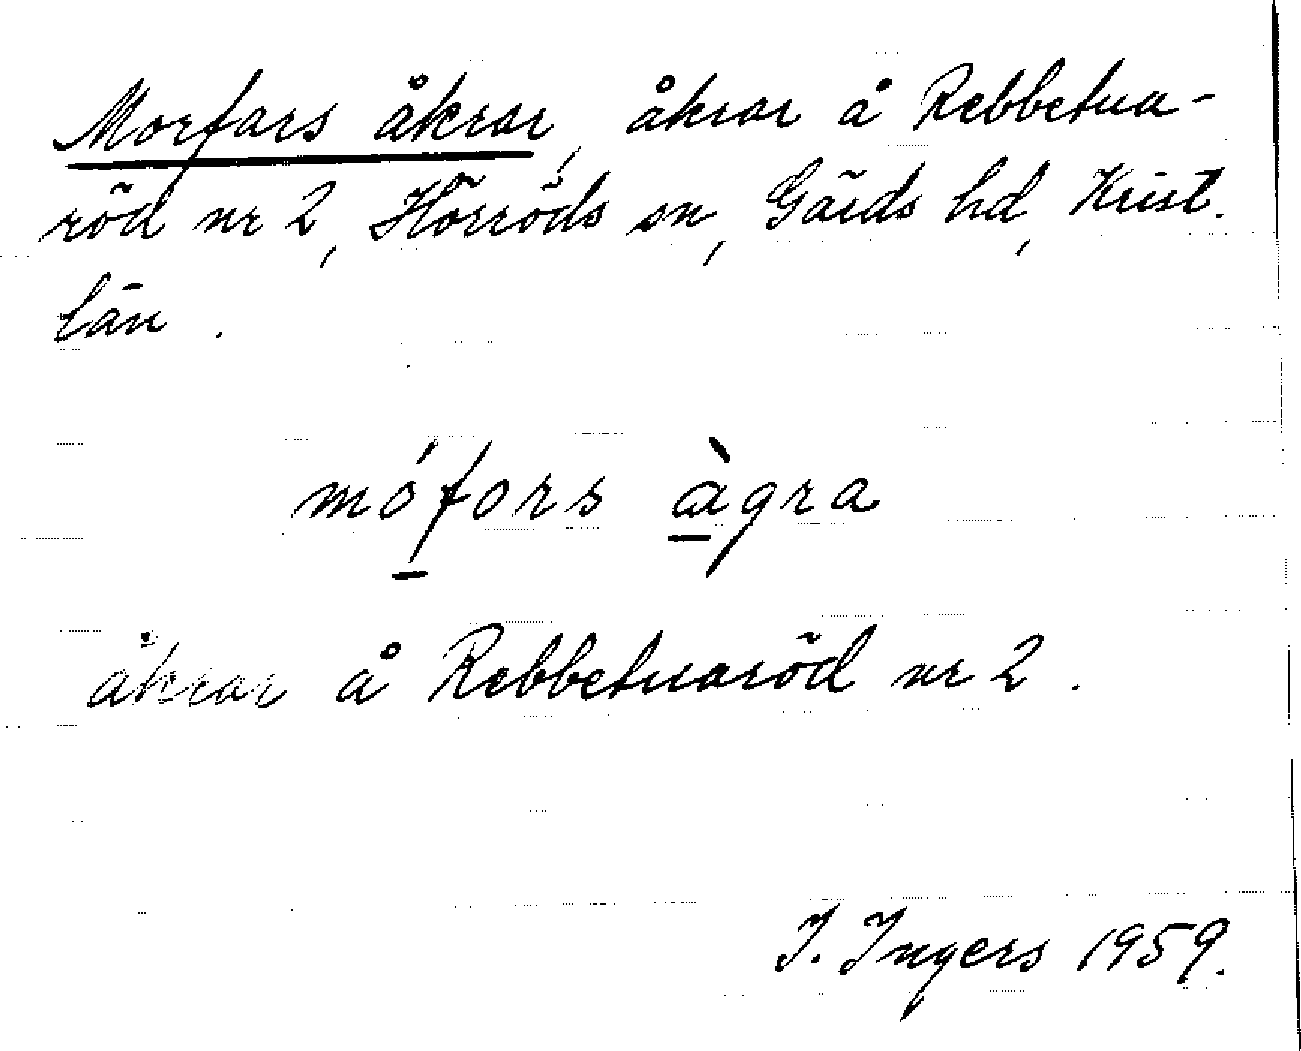 Morfars åkrar, åkrar å Rebbetua-
röd nr 2, Hörröds sn, Gärds hd, Krist.
län.
mófors àgra
åkrar å Rebbetuaröd nr 2.
I. Ingers 1959.